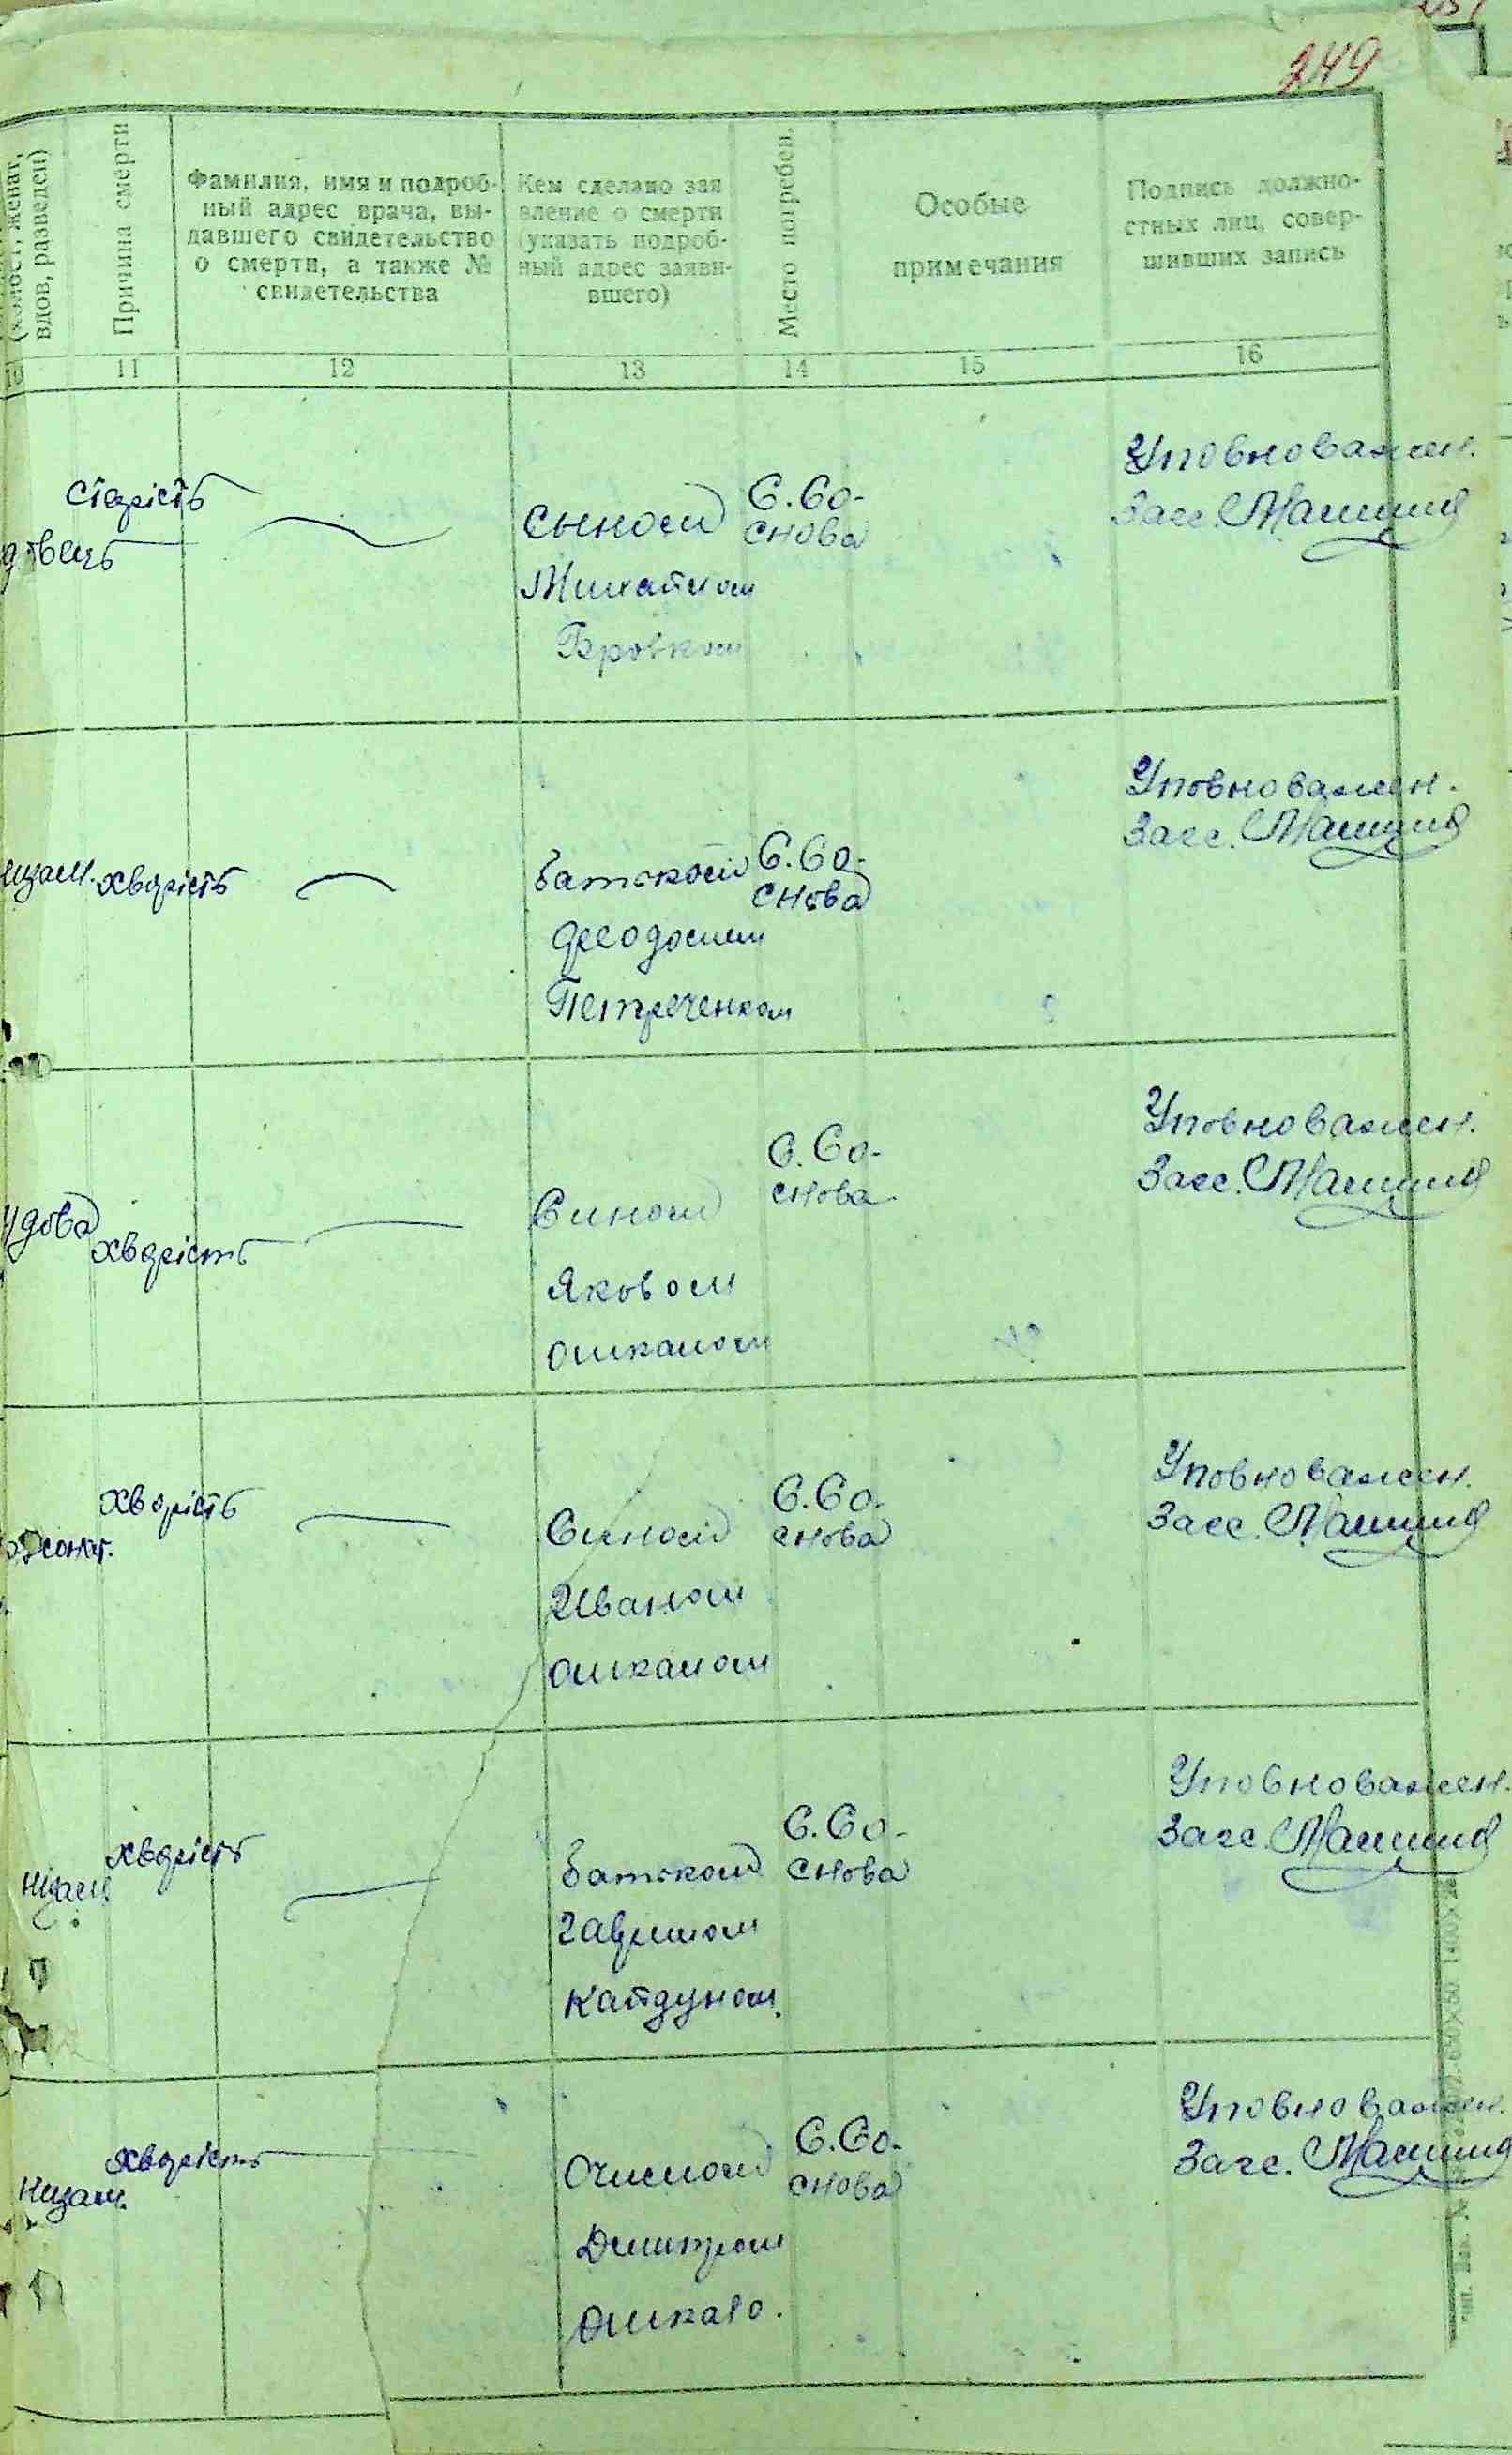 249
(холост, женат,
вдов, разведен)
Причина смерти
Фамилия, имя и подроб-
ный адрес врача, вы-
давшего свидетельство
о смерти, а также №
свидетельства
Кем сделано зая
вление о смерти
(указать подроб-
ный адрес заяви-
вшего)
Место погребен.
Особые
примечания
Подпись должно-
стных лиц, совер-
шивших запись
10
11
12
13
14
15
16
старість
сыном
Михайлом
С. Со-
снова
Уповноважен.
Загс.
хворість
батьком
Феодосием
Петреченком
С. Со-
снова
Уповноважен.
Загс.
удова
хворість
Сином
Яковом
Ошкалом
С. Со-
снова
Уповноважен.
Загс.
хворість
Сином
Иваном
Ошкалом
С. Со-
снова
Уповноважен.
Загс.
хворість
батьком
Гаврилом
Кайдуном
С. Со-
снова
Уповноважен.
Загс.
хворість
Отчимом
Дмитром
Ошкало.
С. Со-
снова
Уповноважен.
Загс.